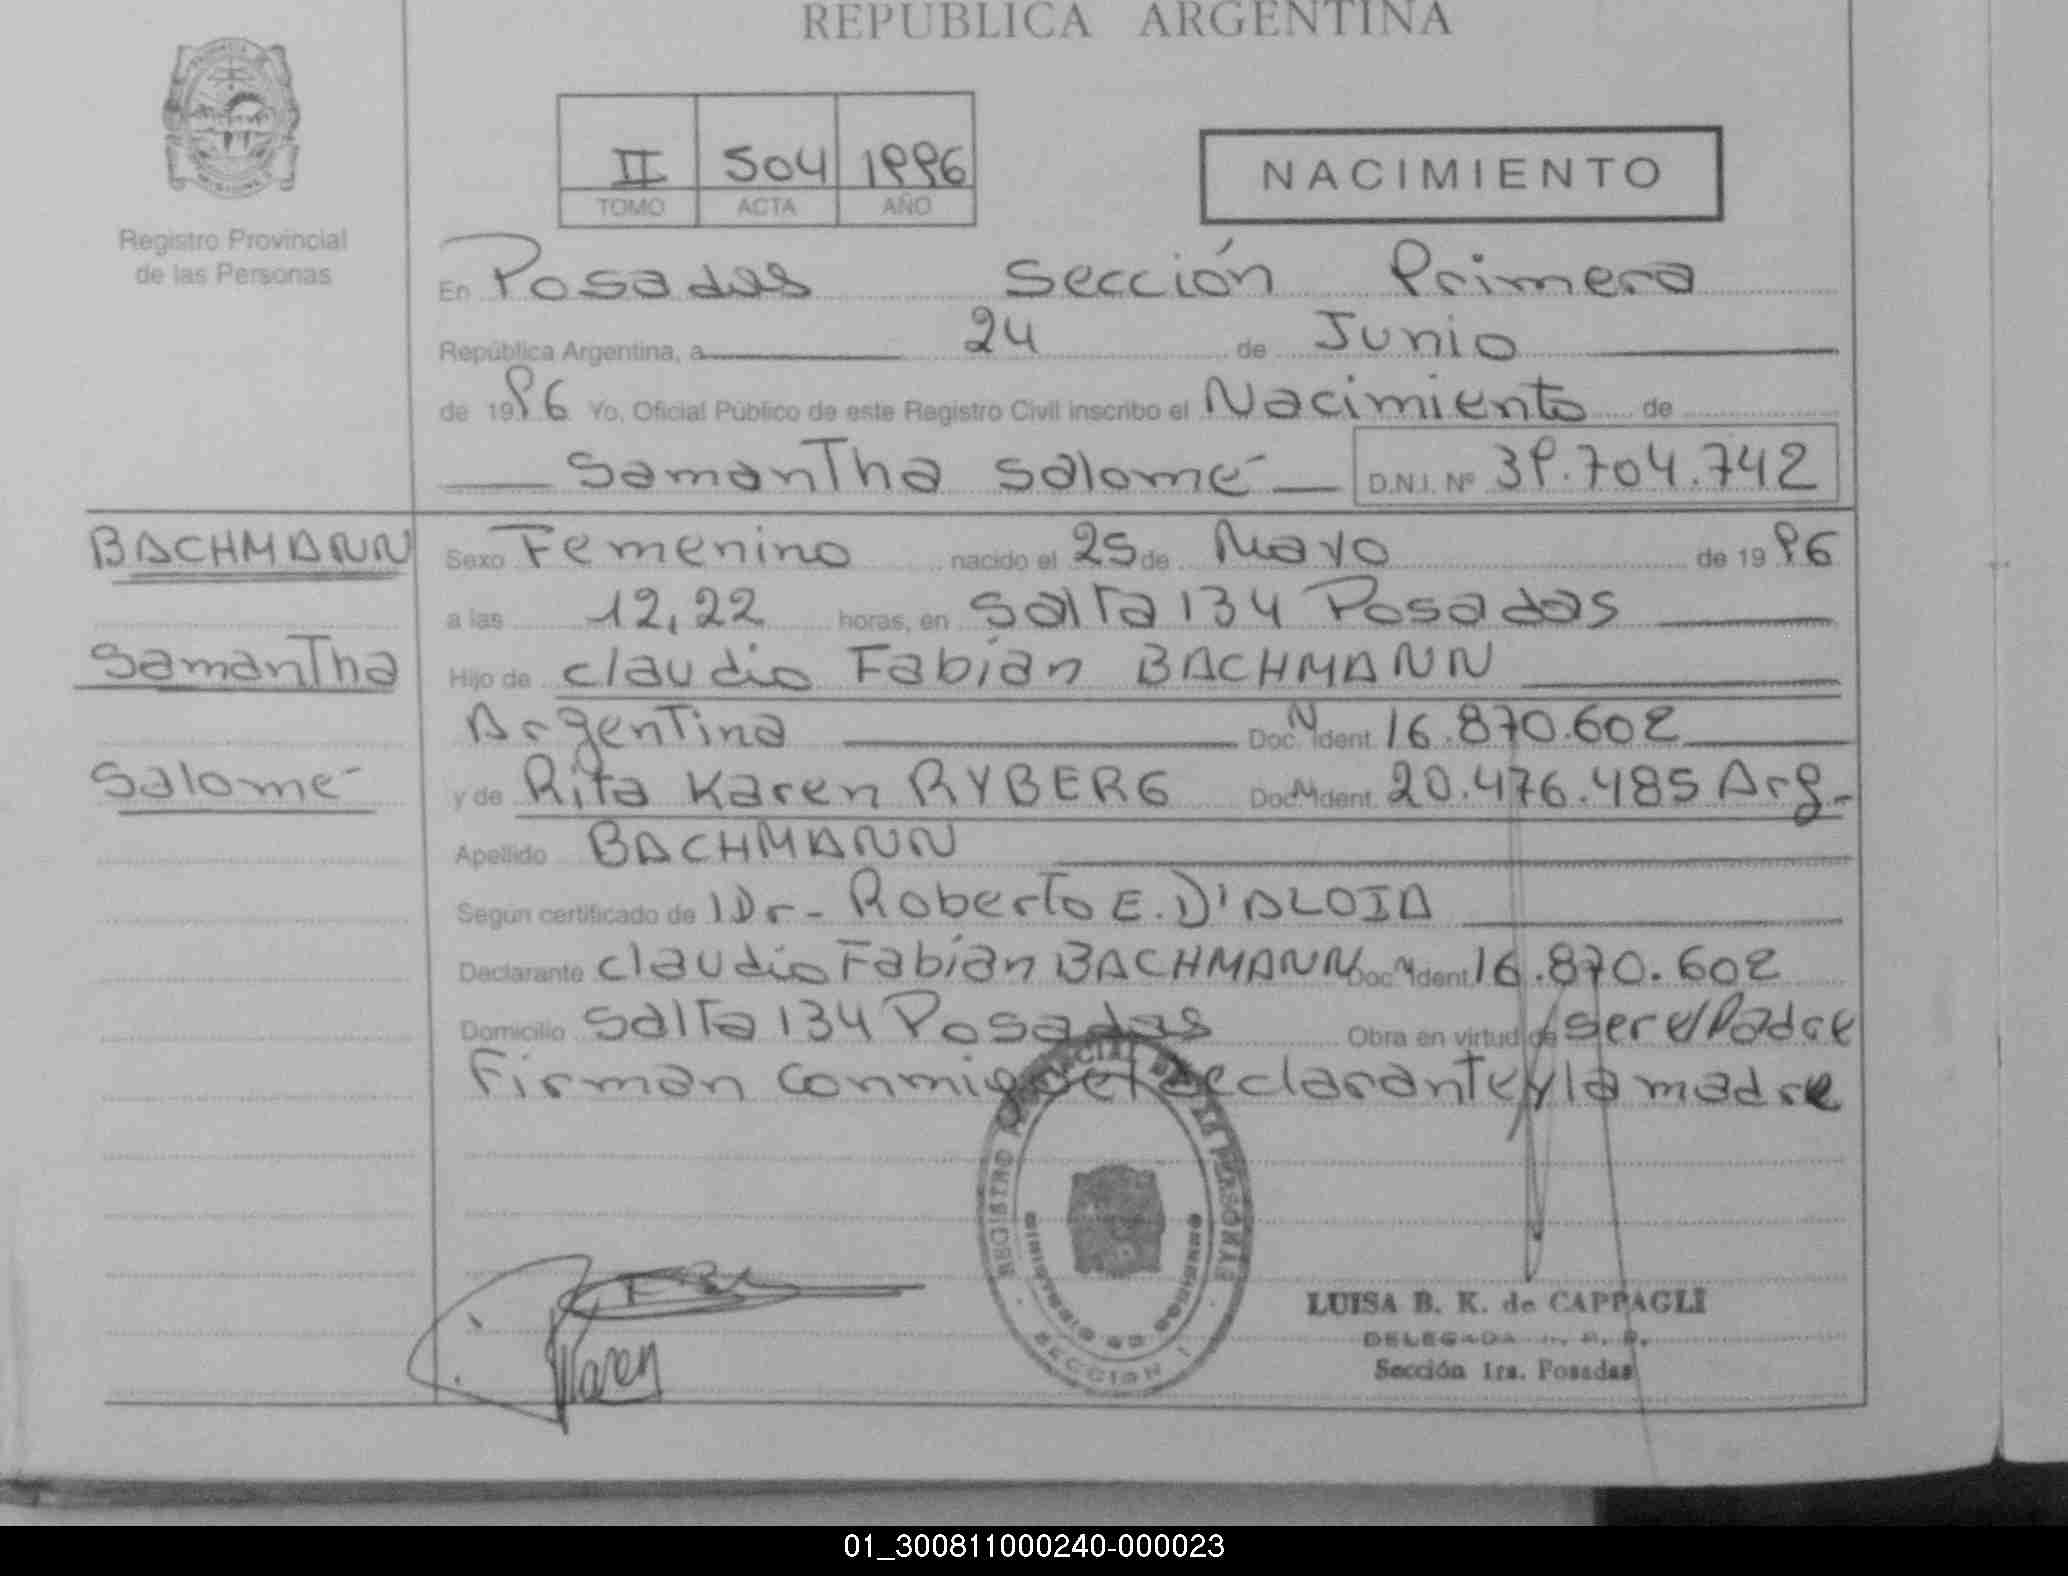 REPUBLICA ARGENTINA
II 504 1996
TOMO ACTA AÑO
NACIMIENTO
Registro Provincial
de las Personas
En Posadas Sección Primera
República Argentina, a 24 de Junio
de 1996 Yo, Oficial Público de este Registro Civil inscribo el Nacimiento de
Samantha Salomé D.N.I. Nº 39.704.742
BACHMANN
Samantha
Salomé
Sexo Femenino nacido el 25 de Mayo de 1996
a las 12,22 horas, en Salta 134 Posadas
Hijo de Claudio Fabián BACHMANN
Argentina Doc. N Ident. 16.870.602
y de Rita Karen RYBERG Doc. N Ident. 20.476.485 Arg.
Apellido BACHMANN
Según certificado de Dr. Roberto E. D'ALOIA
Declarante Claudio Fabián BACHMANN Doc. N Ident. 16.870.602
Domicilio Salta 134 Posadas Obra en virtud de ser el Padre
Firman conmigo el declarante y la madre
REGISTRO PROVINCIAL DE LAS PERSONAS
MINISTERIO DE GOBIERNO
SECCION 1
Karen
LUISA B. K. de CAPPAGLI
DELEGADA
Sección 1ra. Posadas
01_300811000240-000023